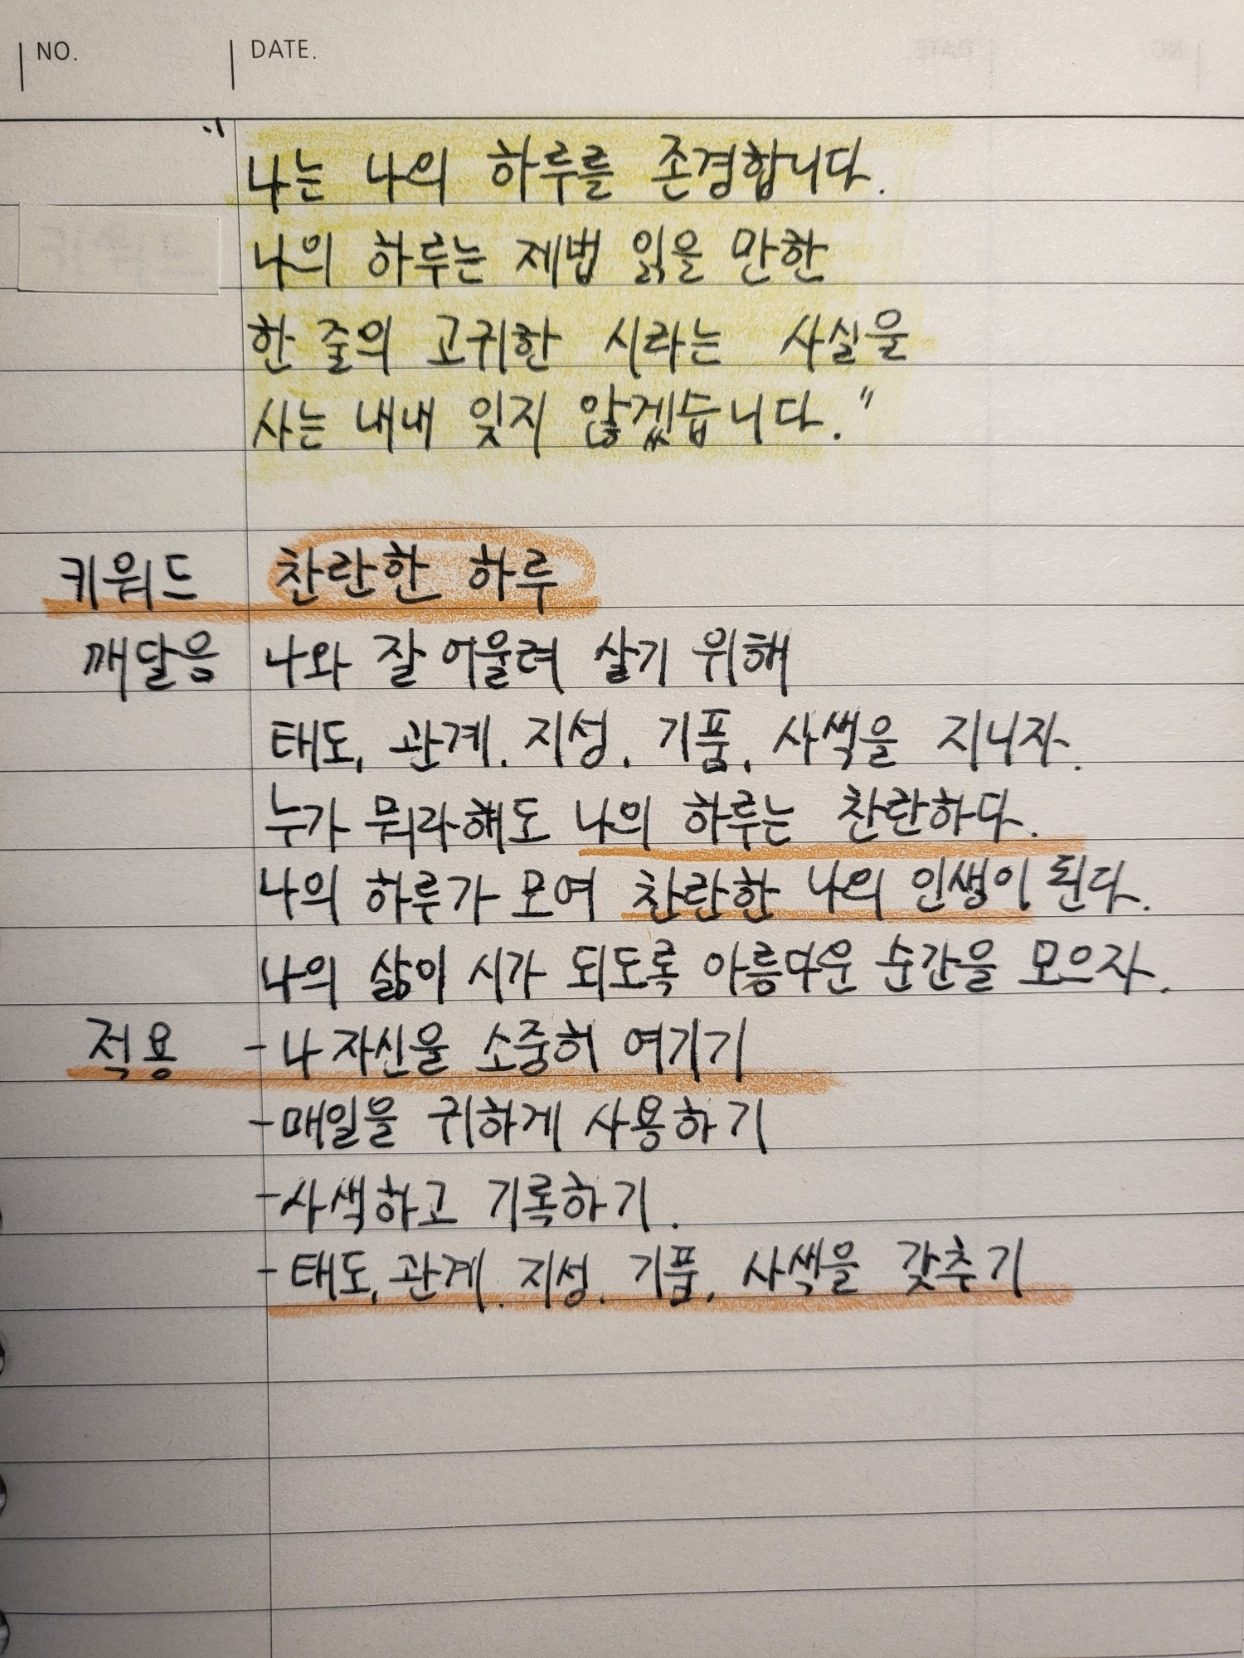 NO. DATE.
"나는 나의 하루를 존경합니다.
나의 하루는 제법 읽을 만한
한 줄의 고귀한 시라는 사실을
사는 내내 잊지 않겠습니다."
키워드 찬란한 하루
깨달음 나와 잘 어울려 살기 위해
태도, 관계, 지성, 기품, 사색을 지니자.
누가 뭐라해도 나의 하루는 찬란하다.
나의 하루가 모여 찬란한 나의 인생이 된다.
나의 삶이 시가 되도록 아름다운 순간을 모으자.
적용 -나 자신을 소중히 여기기
-매일을 귀하게 사용하기
-사색하고 기록하기.
-태도, 관계, 지성, 기품, 사색을 갖추기